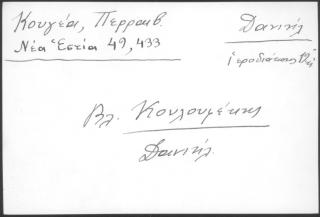 Κουγέα, Περραιβ.
Νέα Ἑστία 49, 433
Δανιήλ
ἱεροδιάκονος
Βλ. Κουλουμέντης
Δανιήλ.